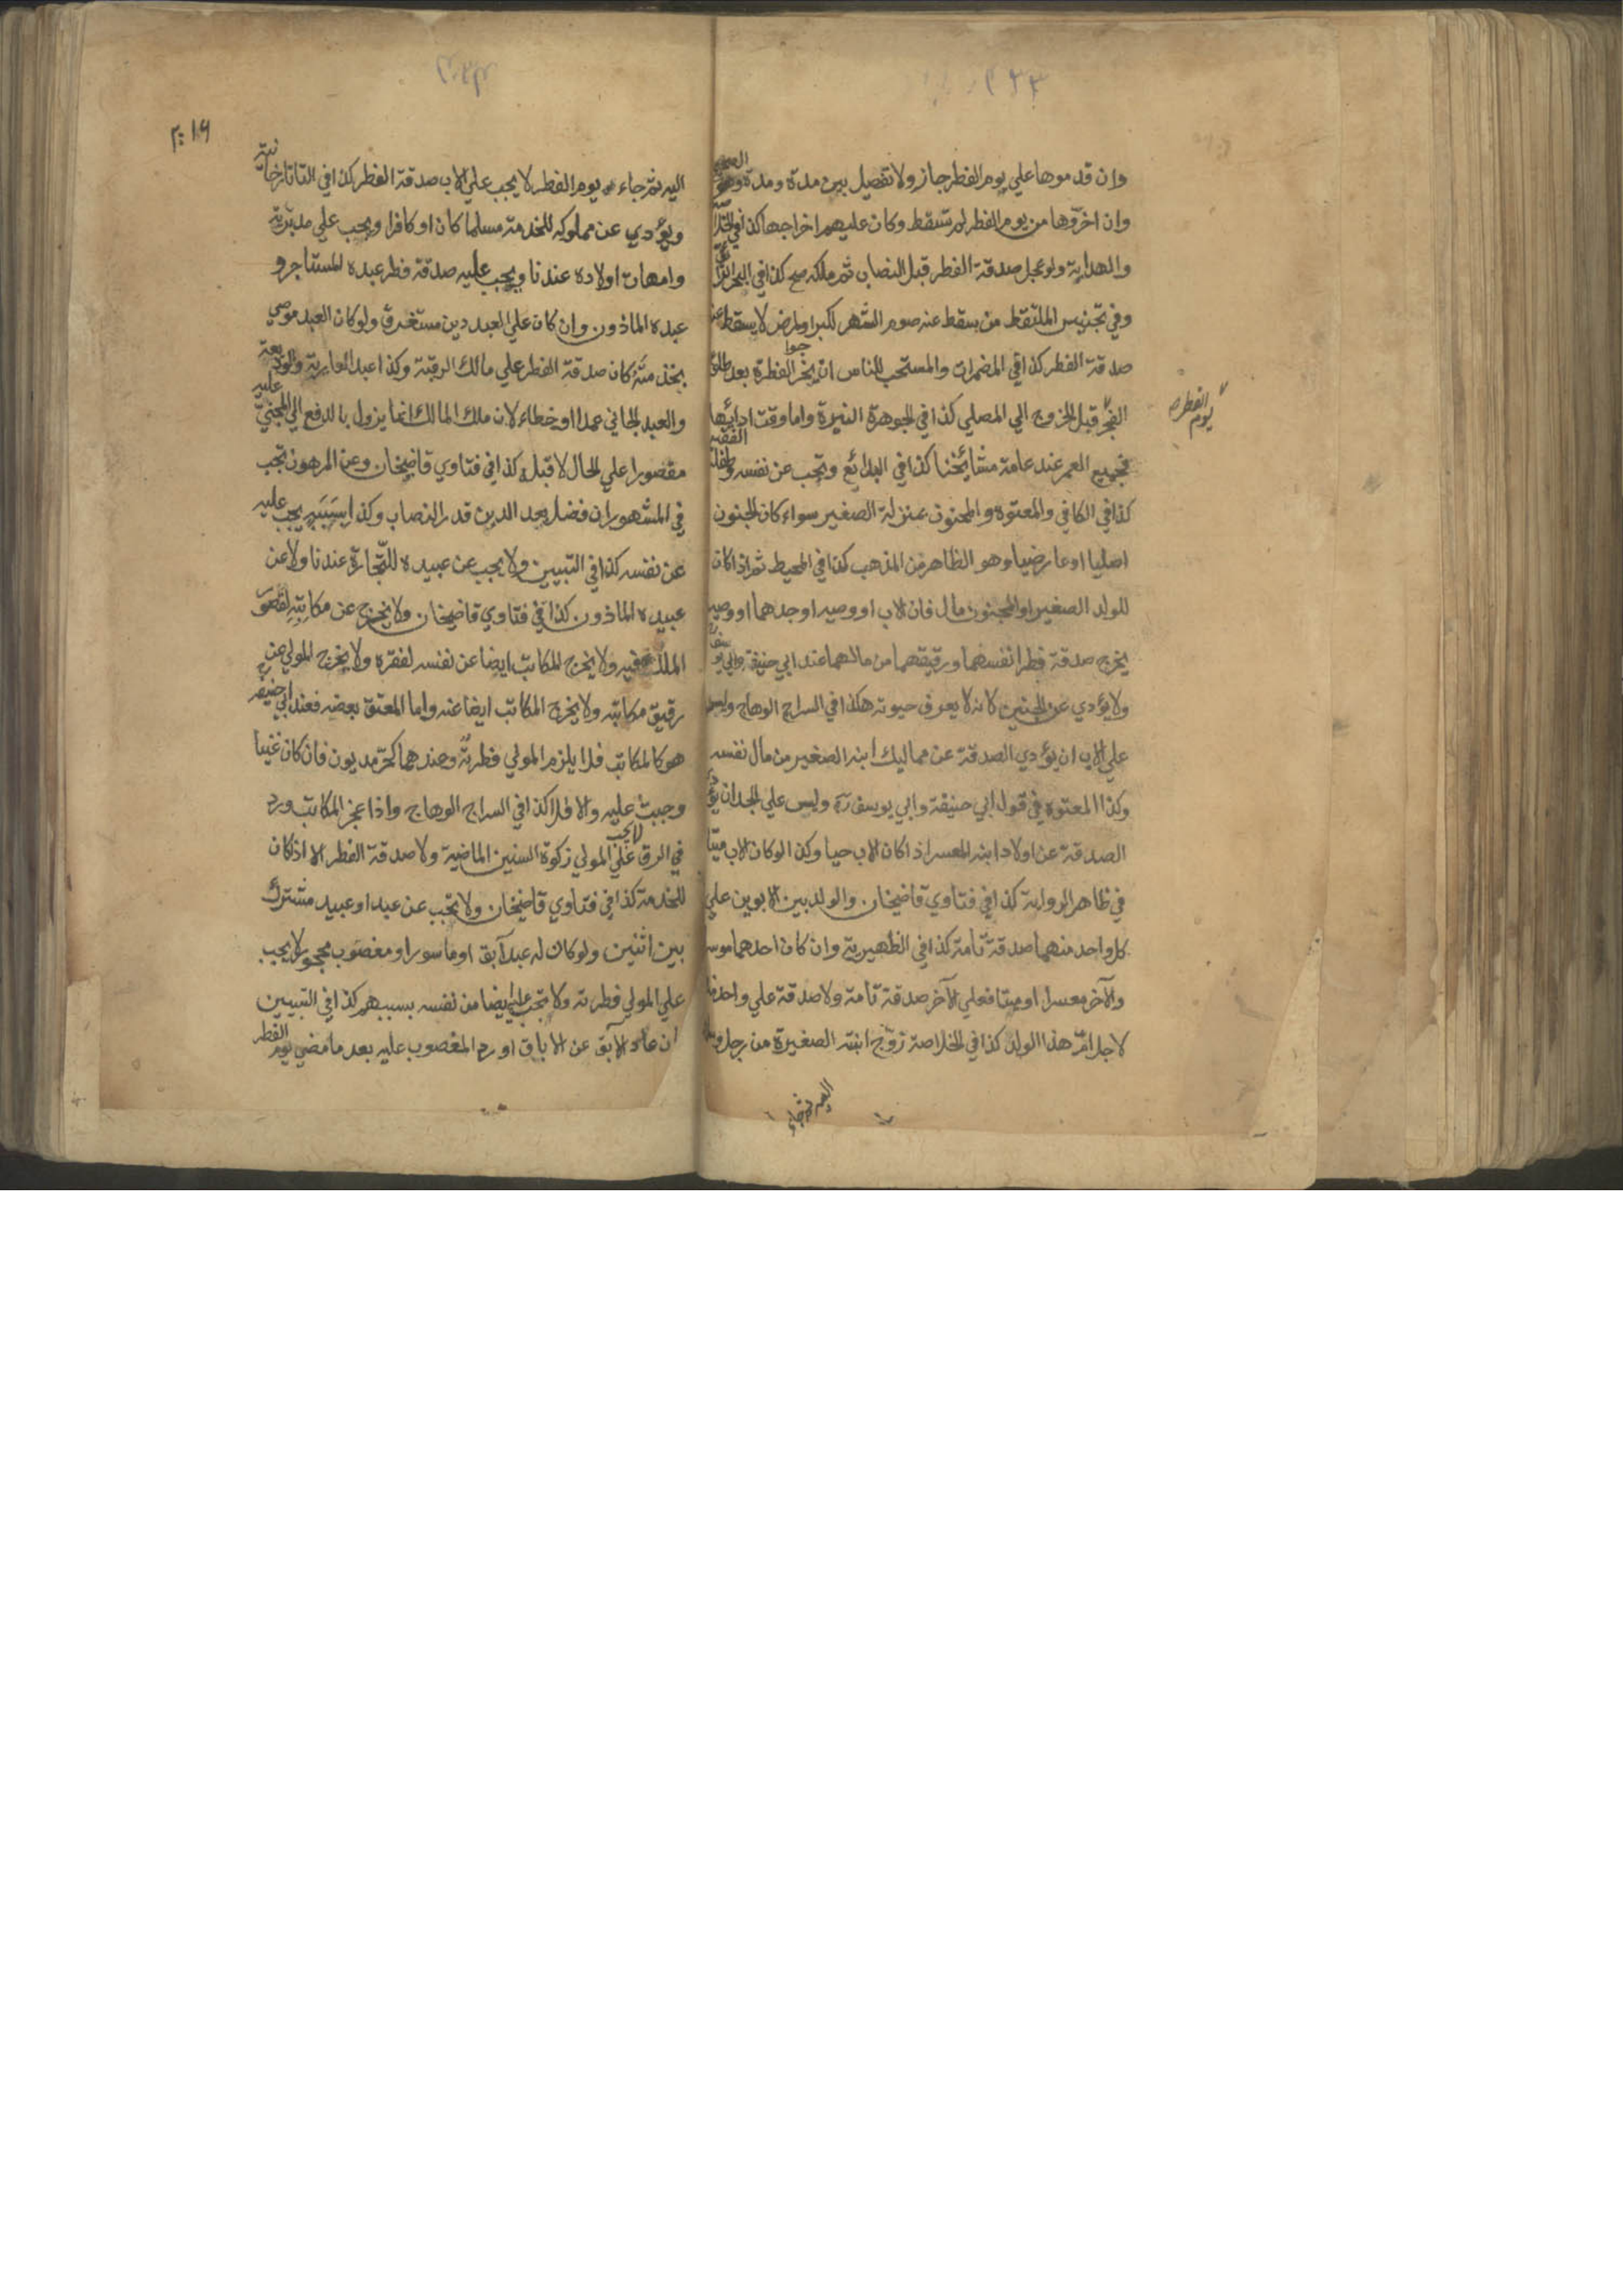 وان قدموها علي يوم الفطر جاز ولا تفصيل بين مدة ومدة وهو الصحيح
وان اخروها من يوم الفطر لم تسقط وكان عليهم اخراجها كذا في
والهداية ولو عجل صدقة الفطر قبل النصاب ثم ملكه صح كذا في البحر الرائق
وفي تجنيس الملتقط من سقط عنه صوم الشهر لكبر او لمرض لا يسقط عنه
صدقة الفطر كذا في المضمرات والمستحب للناس ان يخرجوا الفطرة بعد طلوع
الفجر قبل الخروج الي المصلي كذا في الجوهرة النيرة واما وقت ادائها
يوم الفطر
فجميع العمر عند عامة مشائخنا كذا في البدائع وتجب عن نفسه وطفله الفقير
كذا في الكافي والمعتوه والمجنون بمنزلة الصغير سواء كان الجنون
اصليا او عارضيا وهو الظاهر من المذهب كذا في المحيط ثم اذا كان
للولد الصغير او المجنون مال فان الاب او وصيه او جدهما او وصيه
يخرج صدقة فطر انفسهما ورقيقهما من مالهما عند ابي حنيفة وابي يوسف
ولا يؤدي عن الجنين لانه لا يعرف حيوته هكذا في السراج الوهاج وليس
علي الاب ان يؤدي الصدقة عن مماليك ابنه الصغير من مال نفسه
وكذا المعتوه في قول ابي حنيفة وابي يوسف رح وليس علي الجد ان يؤدي
الصدقة عن اولاد ابنه المعسر اذا كان الاب حيا وكذا لو كان الاب ميتا
في ظاهر الرواية كذا في فتاوي قاضيخان والولد بين الابوين علي
كل واحد منهما صدقة تامة كذا في الظهيرية وان كان احدهما موسرا
والآخر معسرا او ميتا فعلي الآخر صدقة تامة ولا صدقة علي واحد منهما
لاجل ام هذا الولد كذا في الخلاصة زوج ابنته الصغيرة من رجل وسلمها
اليه ثم جاء
اليه ثم جاء يوم الفطر لا يجب علي الاب صدقة الفطر كذا في التاتارخانية
ويؤدي عن مملوكه للخدمة مسلما كان او كافرا ويجب علي مدبريه
وامهات اولاده عندنا ويجب عليه صدقة فطر عبده المستاجر و
عبده الماذون وان كان علي العبد دين مستغرق ولو كان العبد موصي
بخدمته كان صدقة الفطر علي مالك الرقبة وكذا عبد العارية والوديعة
والعبد الجاني عمدا او خطاء لان ملك المالك انما يزول بالدفع الي المجني عليه
مقصورا علي الحال لا قبله كذا في فتاوي قاضيخان وعن المرهون تجب
في المشهور ان فضل بعد الدين قدر النصاب وكذا بسببه يجب عليه
عن نفسه كذا في التبيين ولا يجب عن عبيده للتجارة عندنا ولا عن
عبيده الماذون كذا في فتاوي قاضيخان ولا يخرج عن مكاتبه لقصور
الملك فيه ولا يخرج المكاتب ايضا عن نفسه لفقره ولا يخرج المولي عن
رقيق مكاتبه ولا يخرج المكاتب ايضا عنه واما المعتق بعضه فعند ابي حنيفة رح
هو كالمكاتب فلا يلزم المولي فطرته وعندهما كحر مديون فان كان غنيا
وجبت عليه والا فلا كذا في السراج الوهاج واذا عجز المكاتب ورد
في الرق لا يجب علي المولي زكوة السنين الماضية ولا صدقة الفطر الا اذ كان
للخدمة كذا في فتاوي قاضيخان ولا تجب عن عبد او عبيد مشترك
بين اثنين ولو كان له عبد آبق او ماسور او مغصوب مجحود لا يجب
علي المولي فطرته ولا تجب عليه ايضا من نفسه بسببهم كذا في التبيين
ان عاد الآبق عن الاباق او رد المغصوب عليه بعد ما مضي يوم الفطر